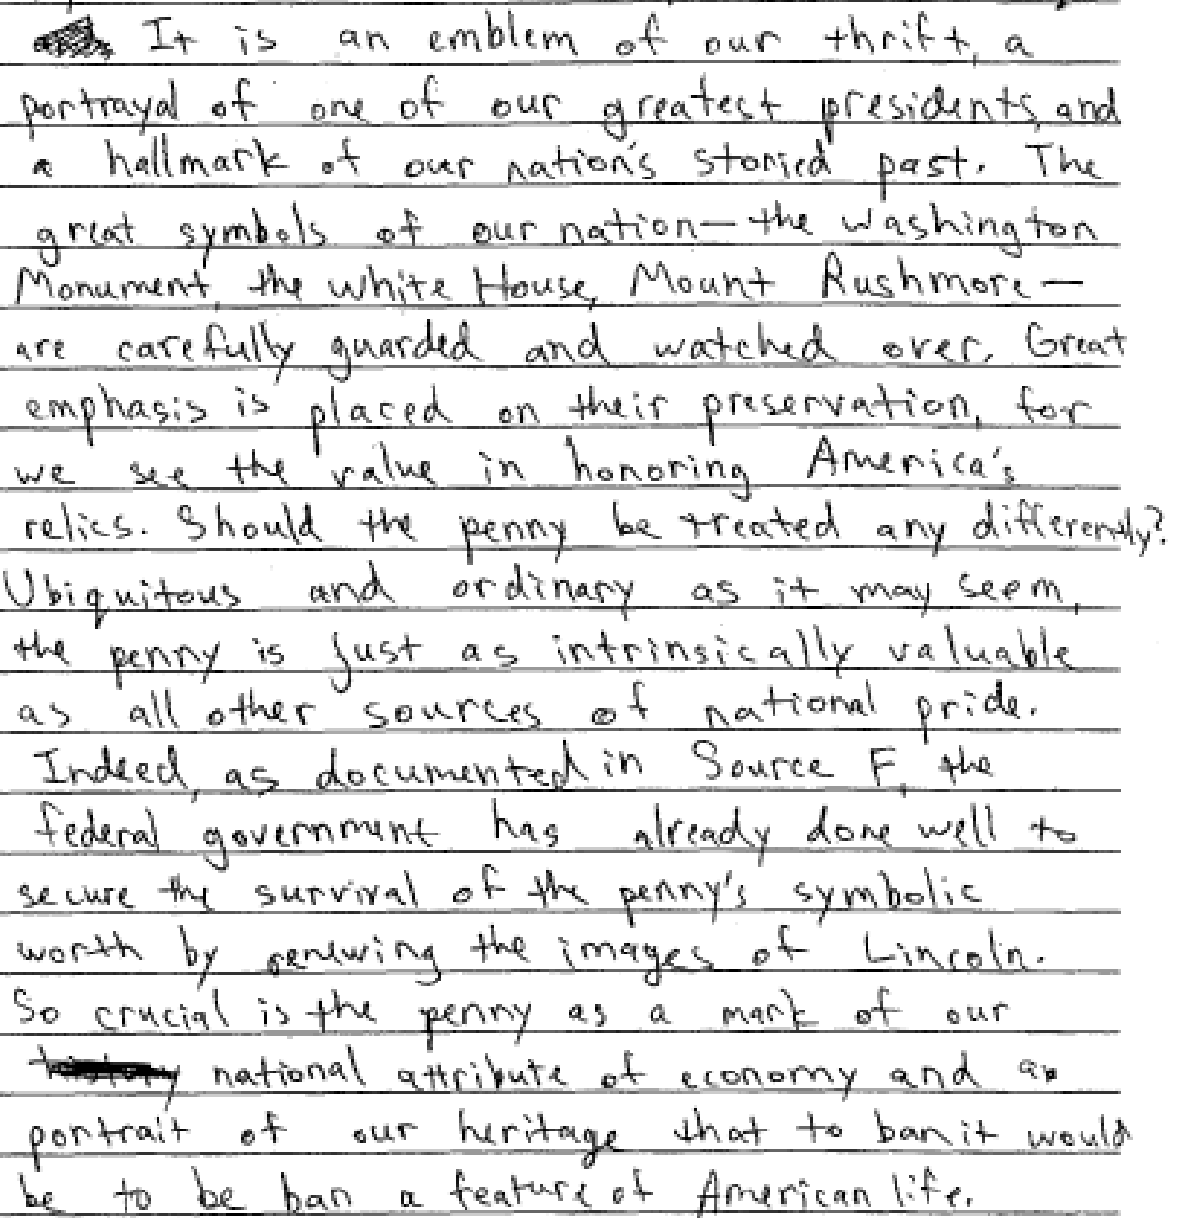 It is an emblem of our thrift, a
portrayal of one of our greatest presidents, and
a hallmark of our nation's storied past. The
great symbols of our nation—the Washington
Monument, the White House, Mount Rushmore—
are carefully guarded and watched over. Great
emphasis is placed on their preservation, for
we see the value in honoring America's
relics. Should the penny be treated any differently?
Ubiquitous and ordinary as it may seem,
the penny is just as intrinsically valuable
as all other sources of national pride.
Indeed, as documented in Source F, the
federal government has already done well to
secure the survival of the penny's symbolic
worth by renewing the images of Lincoln.
So crucial is the penny as a mark of our
national attribute of economy and as
portrait of our heritage that to ban it would
be to be ban a feature of American life.